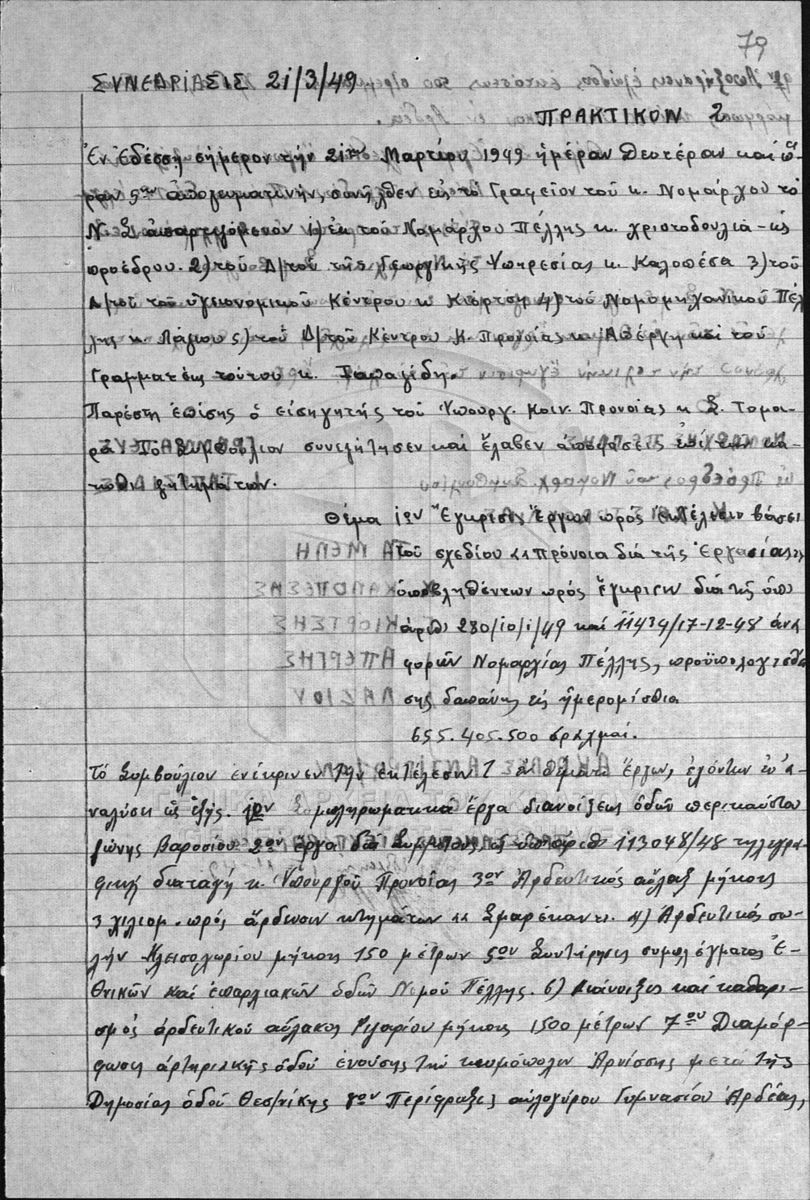 79
ΣΥΝΕΔΡΙΑΣΙΣ 21/3/49
ΠΡΑΚΤΙΚΟΝ 2
Ἐν Ἐδέσσῃ σήμερον τὴν 21ην Μαρτίου 1949 ἡμέραν Δευτέραν καὶ ὥ-
ραν 5ην ἀπογευματινήν, συνῆλθεν εἰς τὸ Γραφεῖον τοῦ κ. Νομάρχου τὸ
Ν. Σ. ἀπαρτιζόμενον 1) ἐκ τοῦ Νομάρχου Πέλλης κ. Χριστοδουλιά ὡς
προέδρου. 2) τοῦ Δ/τοῦ τῆς Γεωργικῆς Ὑπηρεσίας κ. Καλοπέσα 3) τοῦ
Δ/τοῦ τοῦ ὑγειονομικοῦ Κέντρου κ Κιόρτση 4) τοῦ Νομομηχανικοῦ Πέλ
λης κ. Λάζιου 5) τοῦ Δ/τοῦ Κέντρου Κ. Προνοίας κ. Ἀπέργη καὶ τοῦ
Γραμματέως τούτου κ.
Παρέστη ἐπίσης ὁ εἰσηγητὴς τοῦ Ὑπουργ. Κοιν. Προνοίας κ Σ. Τομα-
ρᾶ Τὸ Συμβούλιον συνεζήτησεν καὶ ἔλαβεν ἀποφάσεις ἐπὶ τῶν κά-
τωθι ζητημάτων.
Θέμα 1ον Ἔγκρισις Ἔργων πρὸς ἐκτέλεσιν βάσει
τοῦ σχεδίου "πρόνοια διὰ τῆς Ἐργασίας"
ὑποβληθέντων πρὸς ἔγκρισιν διὰ τῆς ὑπ'
ἀριθ 280/10/1/49 καὶ 11434/17-12-48 ἀνα
φορῶν Νομαρχίας Πέλλης, προϋπολογισθεί
σης δαπάνης εἰς ἡμερομίσθια
655.405.500 δραχμαί.
Τὸ Συμβούλιον ἐνέκρινεν τὴν ἐκτέλεσιν ἔργων, ἐχόντων ἐν ἀ-
ναλύσει ὡς ἑξῆς. 1ον Συμπληρωματικὰ ἔργα διανοίξεως ὁδῶν περικαύστου
ζώνης Βαροσίου 2ον ἔργα ὑπ' ἀριθ 113048/48 τηλεγρα-
φικὴ διαταγὴ κ. Ὑπουργοῦ Προνοίας 3ον Ἀρδευτικὸς αὖλαξ μήκους
3 χιλιομ. πρὸς ἄρδευσιν κτημάτων 4) Ἀρδευτικὸς σω-
λὴν Πλεισοχωρίου μήκους 150 μέτρων 5ον Συντήρησις συμπλέγματος Ἐ-
θνικῶν καὶ ἐπαρχιακῶν ὁδῶν Νομοῦ Πέλλης. 6) Διάνοιξις καὶ καθαρι-
σμὸς ἀρδευτικοῦ αὔλακος Ριζαρίου μήκους 1500 μέτρων 7ον Διαμόρ-
φωσις ἀρτηριακῆς ὁδοῦ ἑνούσης τὴν κωμόπολιν Ἀρνίσσης μετὰ τῆς
Δημοσίας ὁδοῦ Θεσ/νίκης 8ον Περίφραξις αὐλογύρου Γυμνασίου Ἀρδέας,